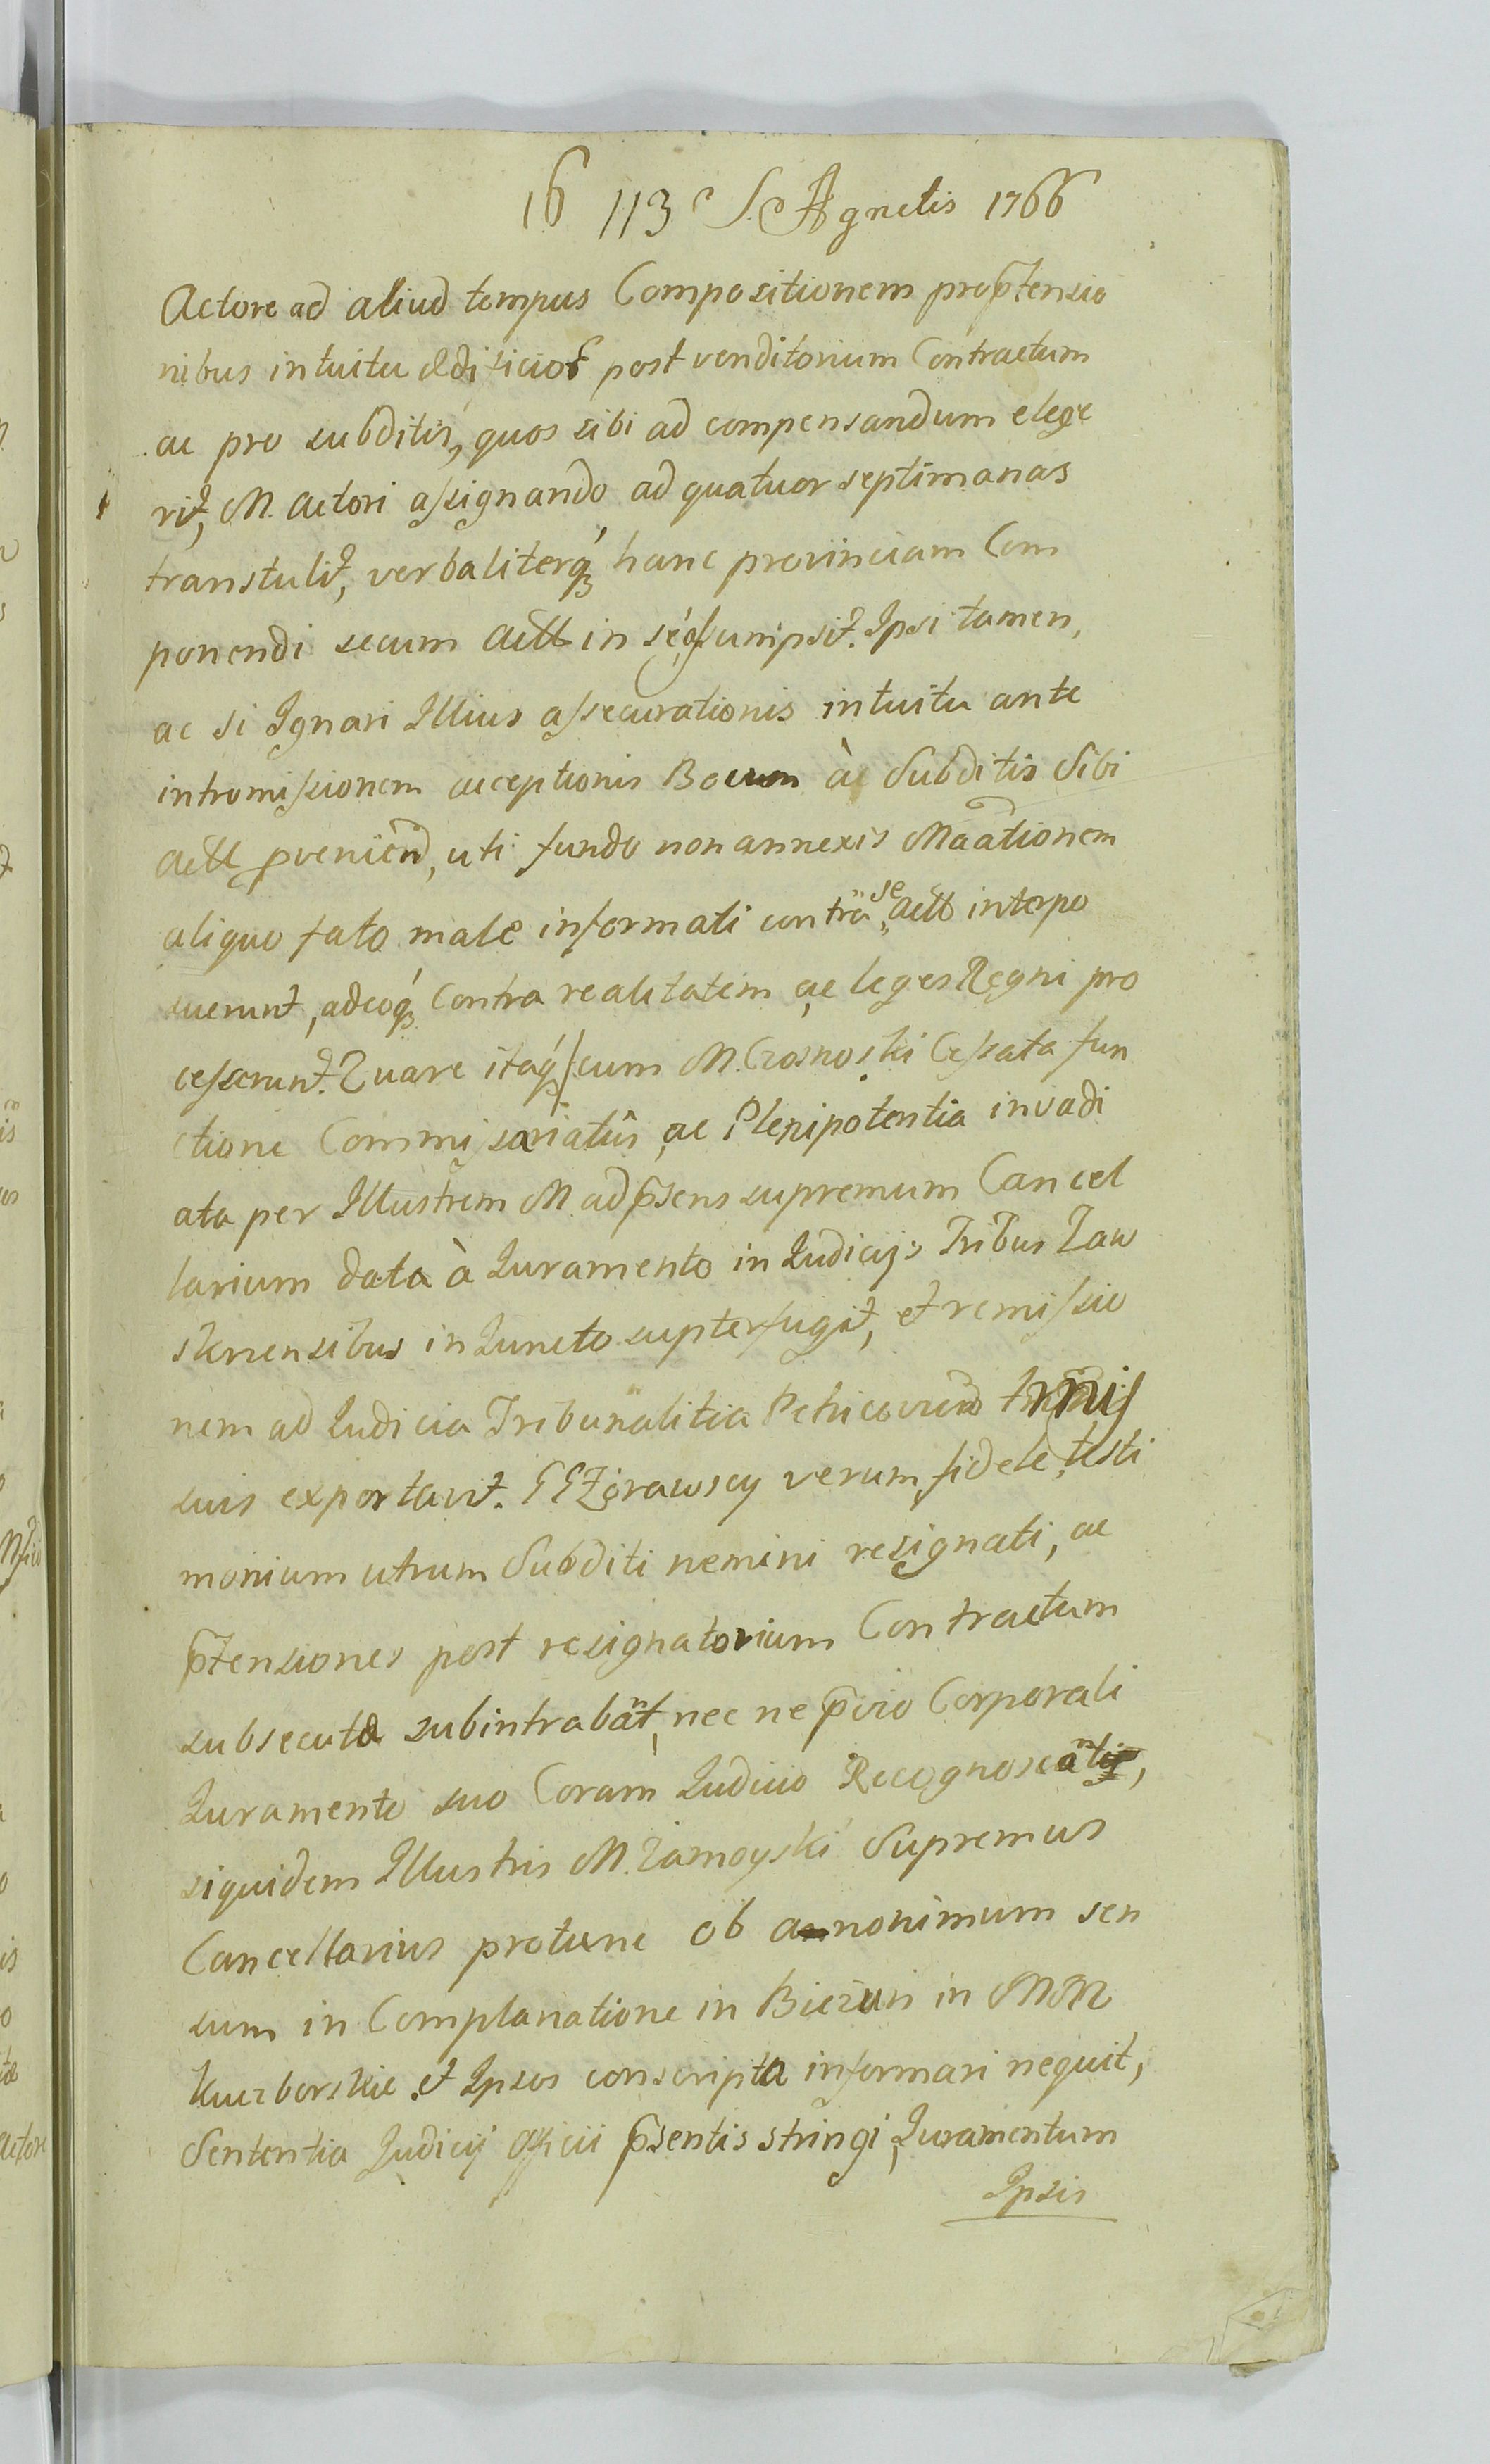 16 113 S. Agnetis 1766
Actore ad aliud tempus Compositionem pro p̃tensio
nibus intuitu ædificior post venditorium Contractum
ac pro subditis, quos sibi ad compensandum elege
rit, M. Actori assignando ad quatuor septimanas
transtulit, verbaliterq́ hanc provinciam Com
ponendi secum Actt in se assumpsit. Ipsi tamen,
ac si Ignari Illius assecurationis intuitu ante
intromissionem acceptionis Boum àc Subditis Sibi
Actt pveniend, uti fundo non annexis Maãtionem
aliquo fato male informati contra se Actt interpo
suerunt, adeoq́ Contra realitatem ac leges Regni pro
cesserunt. Quare itaq́ cum M. Crosnoski Cessata fun
ctione Commissariatûs ac Plenipotentia invadi
ata per Illustrem M. ad p̃sens supremum Cancel
larium data à Juramento in Judicijs Tribus Raw
skensibus in Juncto supterfugit, et remissio
nem ad Judicia Tribunalitia Petricoviens
suis exportavit. GG Zgrawscy verum, fidele, testi
monium utrum Subditi nemini resignati, ac
p̃tensiones post resignatorium Contractum
subsecutæ subintrabãt, nec ne p̃vio Corporali
Juramento suo Coram Judicio Recognoscãt,
siquidem Illustris M. Zamoyski Supremus
Cancellarius protunc ob anonimum sen
sum in Complanatione in Bieżuń in MM
Kuczborskie et Ipsos conscripta informari nequit,
Sententia Judicij Officii p̃sentis stringi, Juramentum
Ipsis